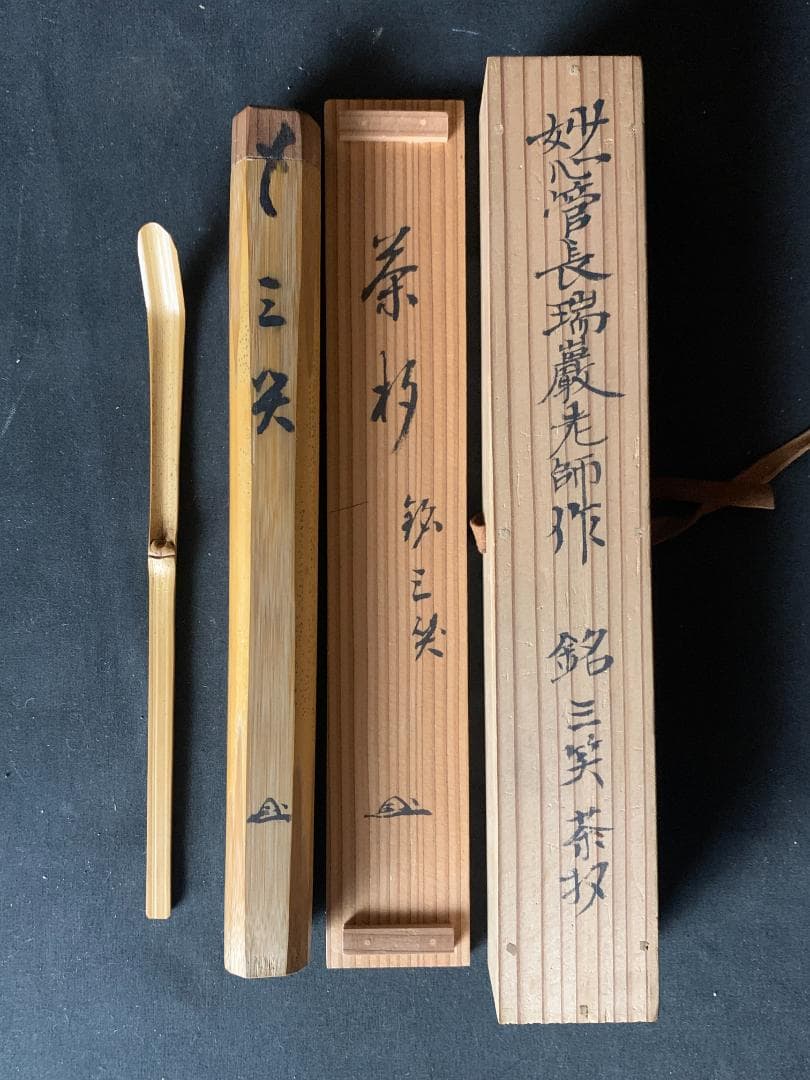 妙心管長瑞巖老師作 銘 三笑 茶杓
茶杓
銘 三笑
三笑